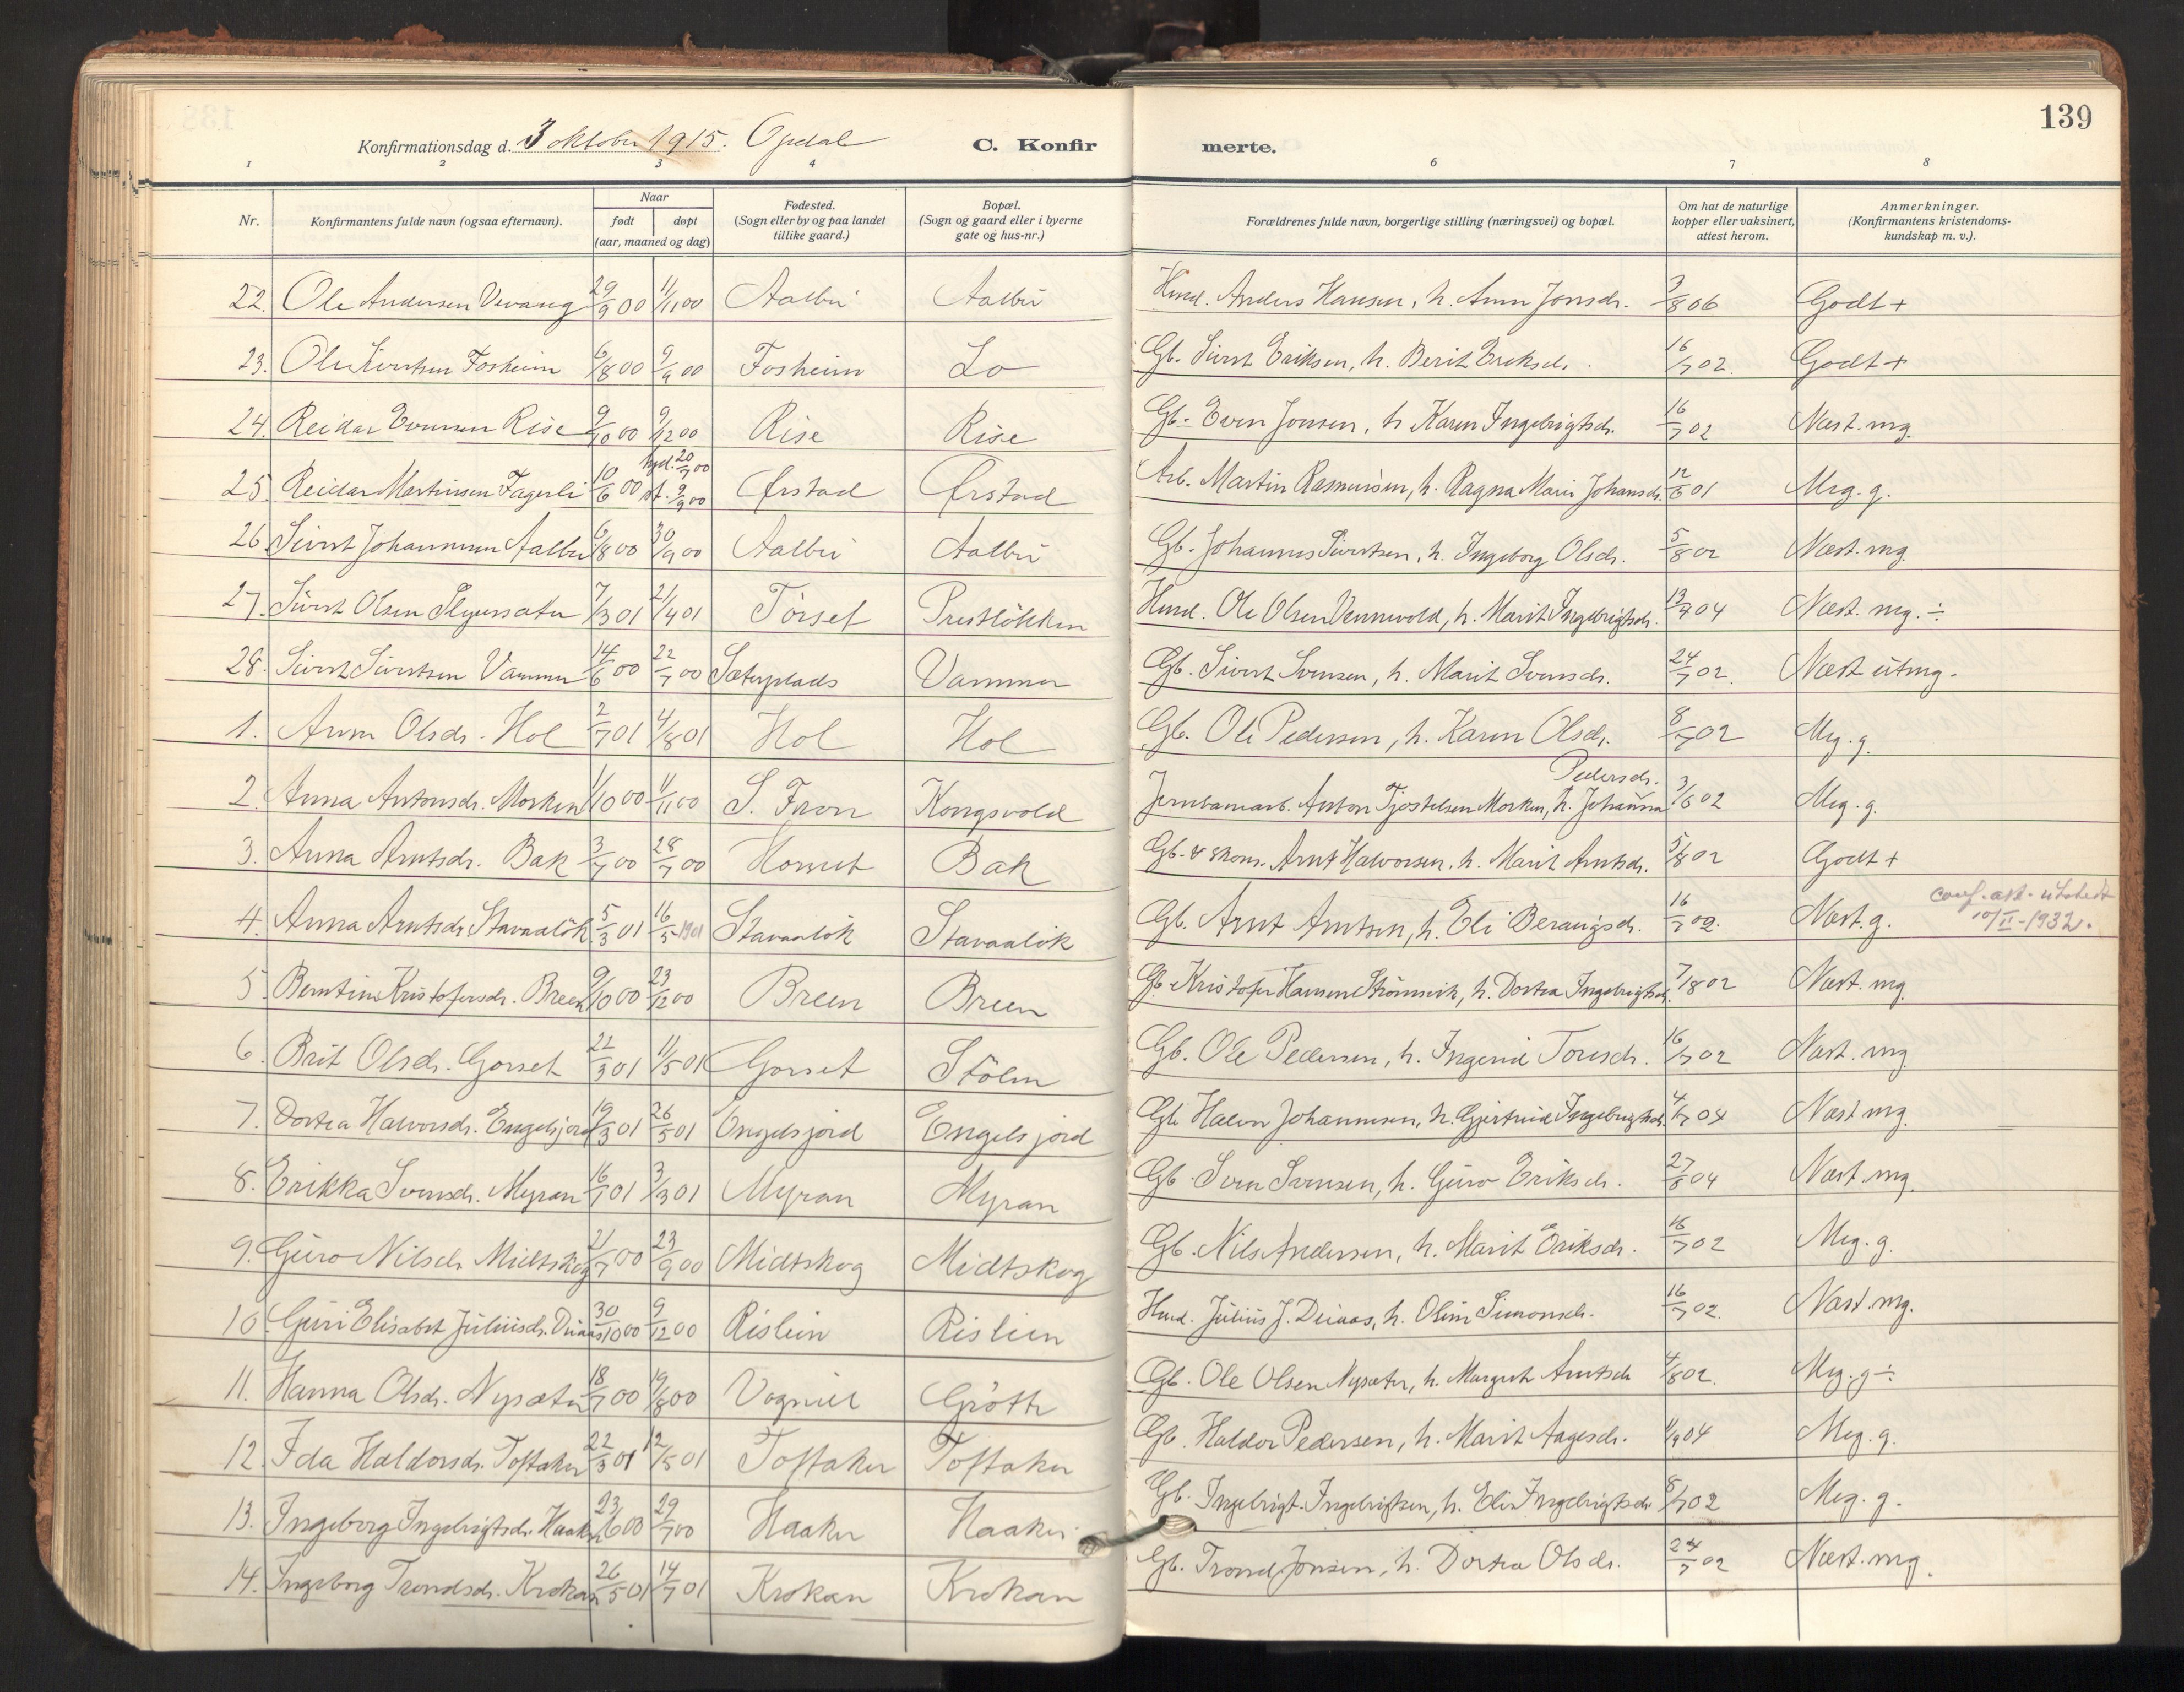 139
Konfirmationsdag d. 3 oktober 1915. Opdal C. Konfirmerte.
1 2 3 4 6 7 8
Nr. Konfirmantens fulde navn (ogsaa efternavn). Naar født døpt (aar, maaned og dag) Fødested. (Sogn eller by og paa landet tillike gaard.) Bopæl. (Sogn og gaard eller i byerne gate og hus-nr.) Forældrenes fulde navn, borgerlige stilling (næringsvei) og bopæl. Om hat de naturlige kopper eller vaksinert, attest herom. Anmerkninger. (Konfirmantens kristendomskundskap m. v.).
22. Ole Andersen Vevang 29/9 00 11/11 00 Aalbu Aalbu Husd. Anders Hansen, h. Ann Jonsdr. 3/8 06 Godt +
23. Ole Sivertsen Fosheim 6/8 00 9/9 00 Fosheim Lo Gb. Sivert Eriksen, h. Berit Eriksdr. 16/7 02. Godt +
24. Reidar Evensen Rise 9/10 00 9/12 00 Rise Rise Gb. Even Jonsen, h. Karen Ingebrigtsdr. 16/7 02 Næst. mg.
25. Reidar Martinsen Fagerli 10/6 00 hjd. 20/7 00 st. 9/9 00 Ørstad Ørstad Arb. Martin Rasmusen, h. Ragna Marie Johansdr. 12/6 01 Meg. g.
26. Sivert Johannesen Aalbu 6/8 00 30/9 00 Aalbu Aalbu Gb. Johannes Sivertsen, h. Ingeborg Olsdr. 5/8 02 Næst. mg.
27. Sivert Olsen 7/3 01 21/4 01 Törset Prestlökken Husd. Ole Olsen Vennevold, h. Marit Ingebrigtsdr. 13/7 04 Næst. mg. ÷
28. Sivert Sivertsen Vammer 14/6 00 22/7 00 Sæterplads Vammer Gb. Sivert Svensen, h. Marit Svensdr. 24/7 02. Næst utmg.
1. Anne Olsdr. Hol 2/7 01 4/8 01 Hol Hol Gb. Ole Pedersen, h. Karen Olsdr. 8/7 02 Meg. g.
2. Anna Antonsdr. Morken 1/10 00 11/11 00 S. Fron Kongsvold Jernbanearb. Anton Tjostelsen Morken, h. Johanna Pedersdr. 3/6 02 Meg. g.
3. Anna Arntsdr. Bak 3/7 00 28/7 00 Horvet Bak Gb. & skom. Arnt Halvorsen, h. Marit Arntsdr. 5/8 02 Godt +
4. Anna Arntsdr. Stavaalök 5/3 01 16/5 1901 Stavaalök Stavaalök Gb. Arnt Arntsen, h. Eli Berangsdr. 16/7 02. Næst. g. conf. att. utstedt 10/II-1932.
5. Berntine Kristofersdr. Breen 9/10 00 23/12 00 Breen Breen Gb. Kristofer Hansen Strömsvik, h. Dortea Ingebrigtsdr. 7/8 02 Næst. mg.
6. Brit Olsdr. Gorset 22/3 01 11/5 01 Gorset Stölen Gb. Ole Pedersen, h. Ingerid Toresdr. 16/7 02 Næst. mg.
7. Dortea Halvorsdr. Engelsjord 19/3 01 26/5 01 Engelsjord Engelsjord Gb. Halvor Johannesen, h. Gjertrud Ingebrigtsdr. 4/7 04 Næst mg.
8. Erikka Svensdr. Myran 16/1 01 3/3 01 Myran Myran Gb. Sven Svensen, h. Guro Eriksdr. 27/8 04 Næst. mg.
9. Guro Nilsdr. Midtskog 21/7 00 23/9 00 Midtskog Midtskog Gb. Nils Andersen, h. Marit Eriksdr. 16/7 02 Meg. g.
10. Guri Elisabet Juliusdr. Duaas 30/10 00 9/12 00 Rislien Rislien Husd. Julius J. Duaas, h. Oline Simonsdr. 16/7 02. Næst. mg.
11. Hanna Olsdr. Nysæter 18/7 00 19/8 00 Vognill Grötte Gb. Ole Olsen Nysæter, h. Margret Arntsdr. 4/8 02. Meg. g ÷
12. Ida Haldorsdr. Toftaker 22/3 01 12/5 01 Toftaker Toftaker Gb. Haldor Pedersen, h. Marit Aagesdr. 11/9 04 Meg. g.
13. Ingeborg Ingebrigtsdr. Haaker 23/6 00 29/7 00 Haaker Haaker Gb. Ingebrigt Ingebrigtsen, h. Eli Ingebrigtsdr. 8/7 02 Meg. g.
14. Ingeborg Trondsdr. Krokan 26/5 01 14/7 01 Krokan Krokan Gb. Trond Jonsen, h. Dortea Olsdr. 24/7 02 Næst. mg.